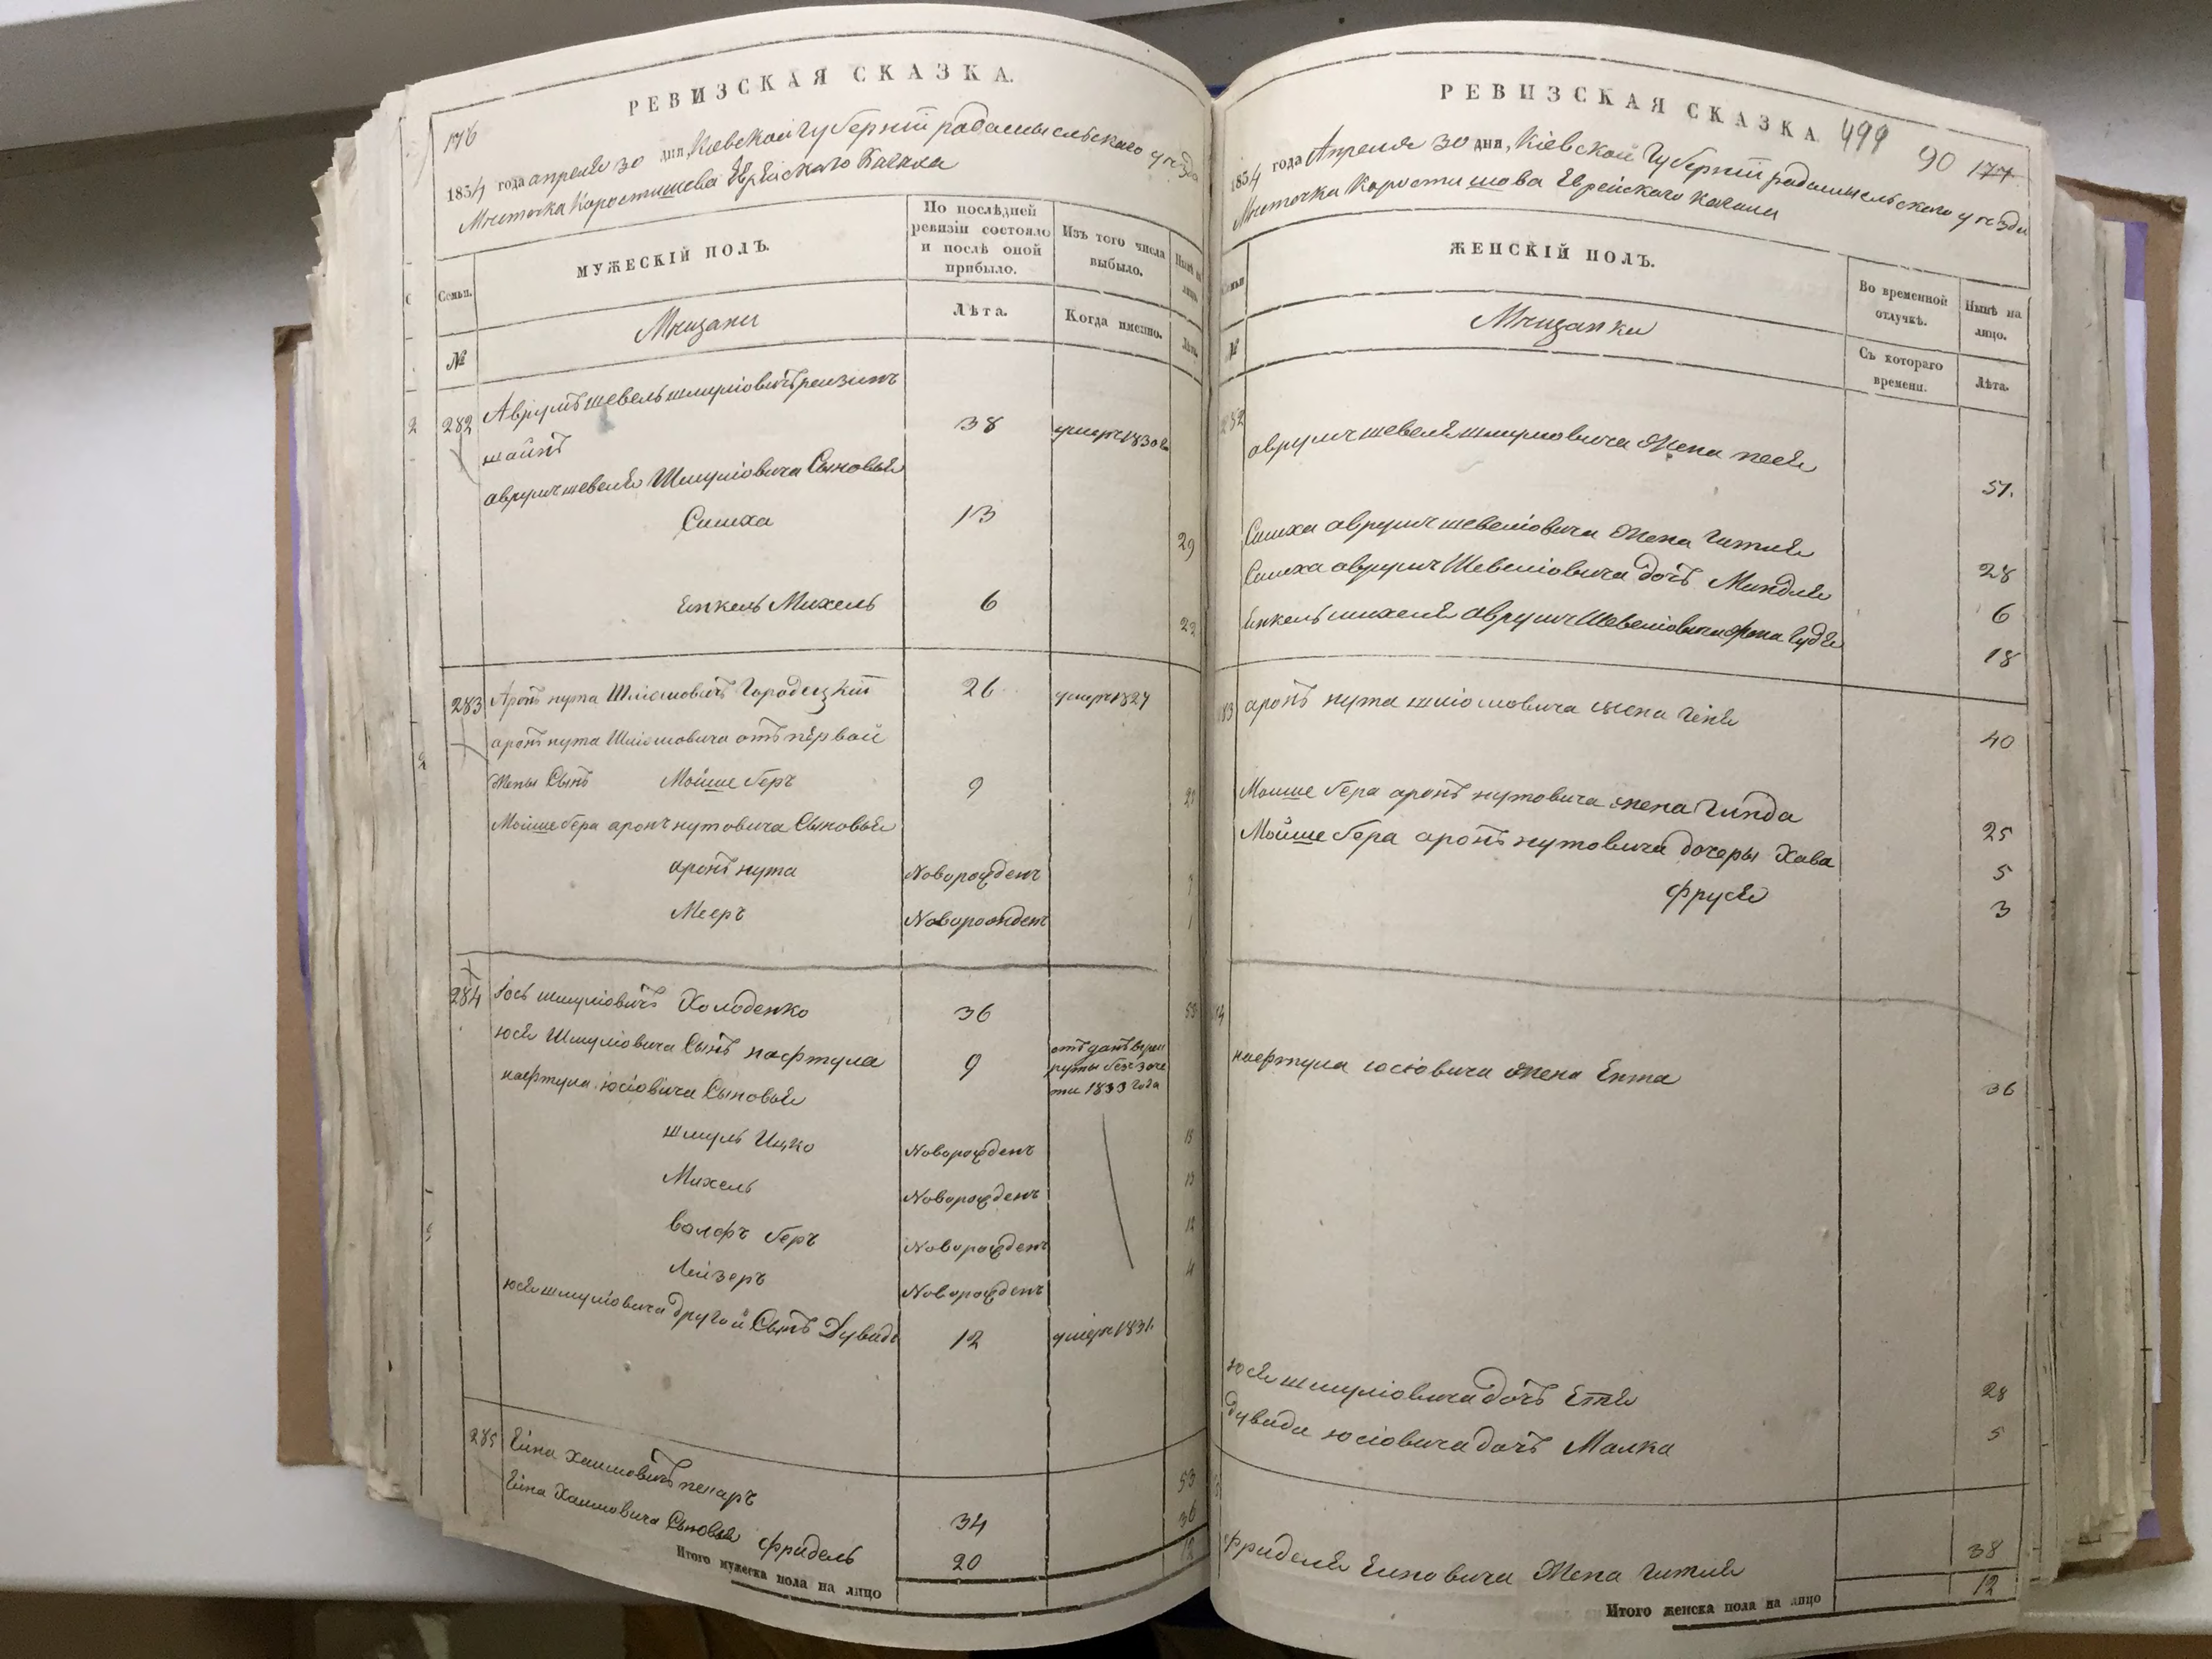 РЕВИЗСКАЯ СКАЗКА.
176
1854 года апреля 30 дня, Кіевской губерніи радомысльского уѣзда
Мѣсточка Коростишева Еврейского Кагала
Семьи.
МУЖЕСКІЙ ПОЛЪ.
По послѣдней ревизіи состояло и послѣ оной прибыло.
Изъ того числа выбыло.
Нынѣ на лицо.
№
Мѣщани
Лѣта.
Когда именно.
Лѣта.
282 Аврумъ шевель шмуліовичъ
шайнъ 38 умеръ 1830 г
аврумъ шевеля Шмуліовича Сыновья
Симха 13 29
Енкель Михель 6 22
283 Аронъ нута Шліомовичъ Городецкій 26 умеръ 1827
аронъ нута Шліомовича отъ первой
жены Сынъ Мойше беръ 9
Мойше бера аронъ нутовича Сыновья
аронъ нута Новорожденъ
Мееръ Новорожденъ 1
284 Іось шмуліовичъ Холоденко 36 53
юся Шмуліовича Сынъ нафтула 9 отъданъ врекруты без заче
ти 1833 года
нафтула юсіовича Сыновья
шмуль Ицко Новорожденъ 15
Михель Новорожденъ 13
волфъ беръ Новорожденъ 12
Лейзеръ Новорожденъ 4
юся шмуліовича другой Сынъ Дувидъ 12 умеръ 1831.
285 Ейна хаимовичъ 34 53
Ейна Хаимовича Сыновья фридель 20 36
Итого мужеска пола на лицо 12
РЕВИЗСКАЯ СКАЗКА
499 90 177
1854 года Апреля 30 дня, Кіевской Губерніи радомысльского уѣзда
Мѣсточка Коростишова Еврейского Кагала
Семьи
ЖЕНСКІЙ ПОЛЪ.
Во временной отлучкѣ.
Нынѣ на лицо.
№
Мѣщанки
Съ котораго времени.
Лѣта.
282 аврумъ шевеля шмуліовича Жена песя 51.
Симха аврумъ шевеліовича Жена Гитля 28
Симха аврумъ Шевеліовича дочъ Миндля 6
Енкель михеля аврумъ Шевеліовича Жена Гудя 18
83 аронъ нута шліомовича жена Геня 40
Мойше бера аронъ нутовича жена Гинда 25
Мойше бера аронъ нутовича дочеры Хава 5
фруся 3
нафтула юсіовича Жена Ента 36
юся шмуліовича дочъ Етя 28
дувида юсіовича дочъ Малка 5
Фриделя Ейновича Жена Гитля 38
Итого женска пола на лицо 12